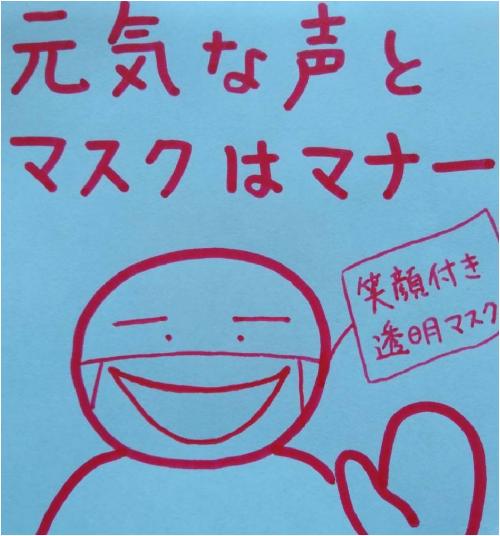 元気な声と
マスクはマナー
笑顔付き
透明マスク